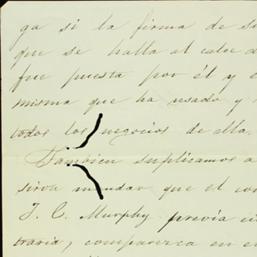 ga si la firma de su
que se halla al calce de
fue puesta por él y e
misma que ha usado y
todos los negocios de ella.
Tambien suplicamos a
sirva mandar que el
J. C. Murphy previa ci
traria, comparezca en e